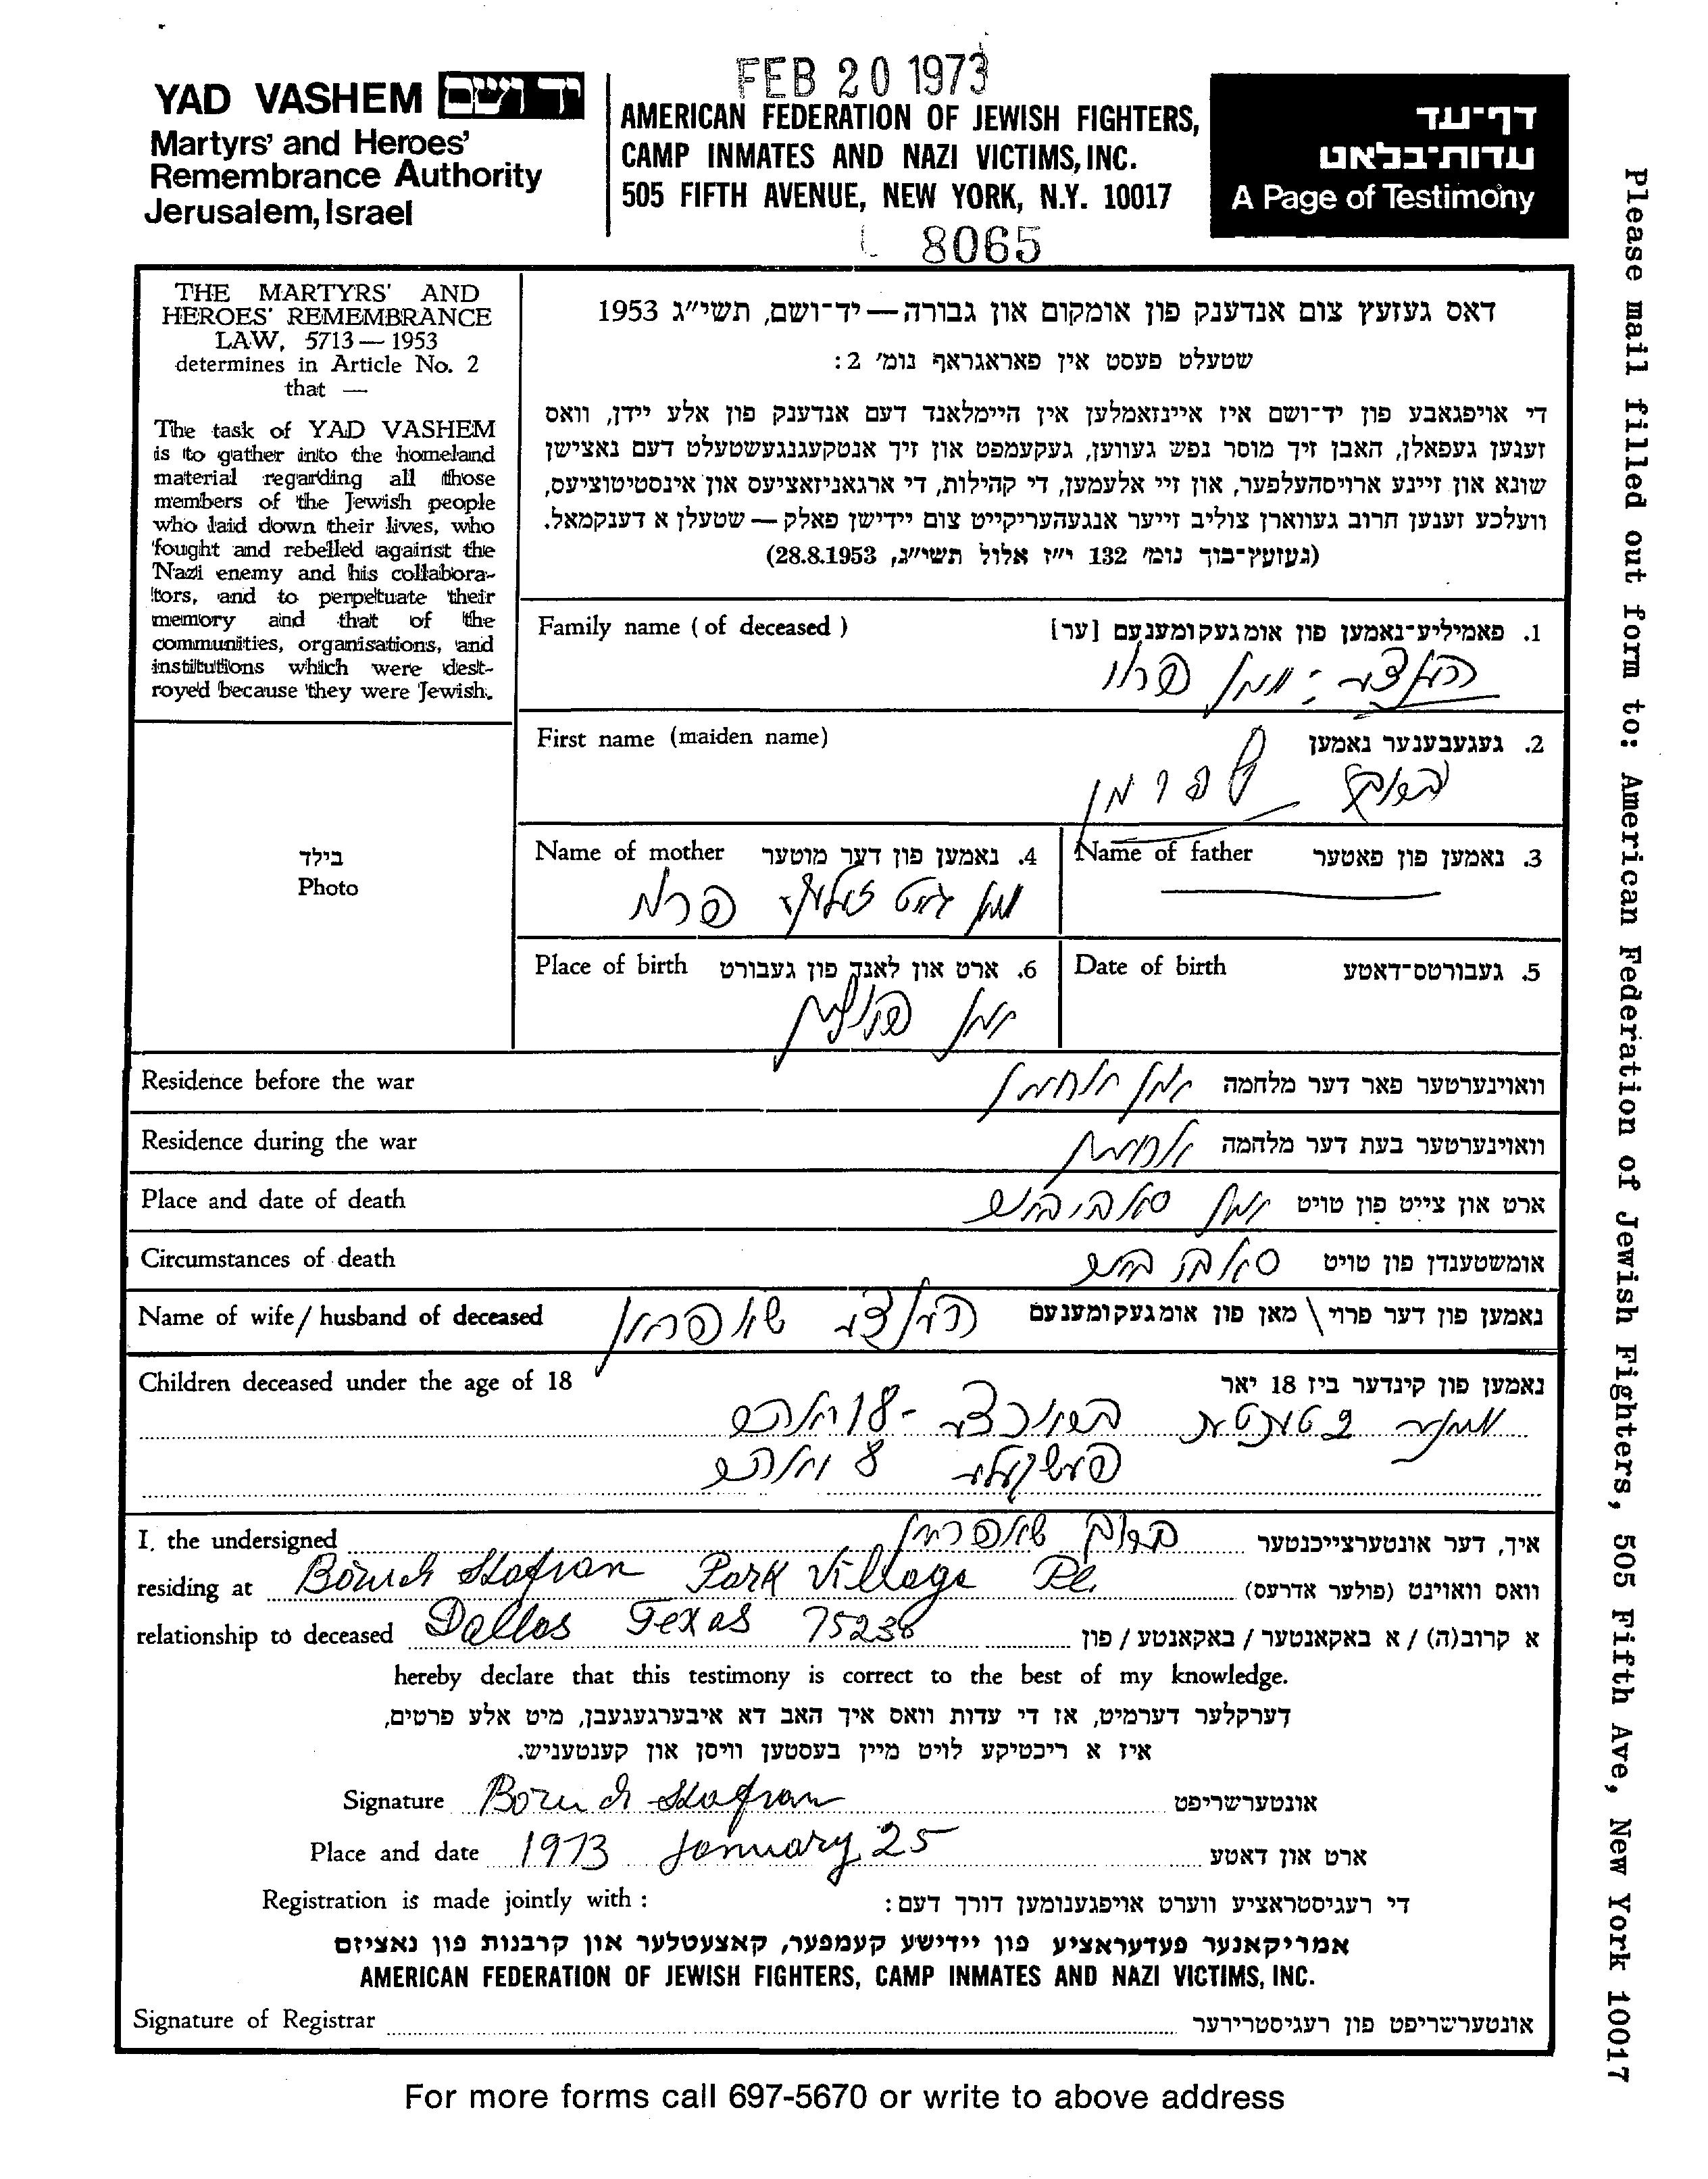 FEB 20 1973
YAD VASHEM יד ושם
Martyrs' and Heroes'
Remembrance Authority
Jerusalem, Israel
AMERICAN FEDERATION OF JEWISH FIGHTERS,
CAMP INMATES AND NAZI VICTIMS, INC.
505 FIFTH AVENUE, NEW YORK, N.Y. 10017
8065
דף־עד
עדות־בלאט
A Page of Testimony
THE MARTYRS' AND
HEROES' REMEMBRANCE
LAW, 5713 — 1953
determines in Article No. 2
that —
The task of YAD VASHEM
is to gather into the homeland
material regarding all those
members of the Jewish people
who laid down their lives, who
fought and rebelled against the
Nazi enemy and his collabora-
tors, and to perpetuate their
memory and that of the
communities, organisations, and
institutions which were dest-
royed because they were Jewish.
דאס געזעץ צום אנדענק פון אומקום און גבורה — יד־ושם, תשי״ג 1953
שטעלט פעסט אין פאראגראף נומ׳ 2:
די אויפגאבע פון יד־ושם איז איינזאמלען אין היימלאנד דעם אנדענק פון אלע יידן, וואס
זענען געפאלן, האבן זיך מוסר נפש געווען, געקעמפט און זיך אנטקעגנגעשטעלט דעם נאצישן
שונא און זיינע ארויסהעלפער, און זיי אלעמען, די קהילות, די ארגאניזאציעס און אינסטיטוציעס,
וועלכע זענען חרוב געווארן צוליב זייער אנגעהעריקייט צום יידישן פאלק — שטעלן א דענקמאל.
(געזעץ־בוך נומ׳ 132 י״ז אלול תשי״ג, 28.8.1953)
Family name (of deceased) 1. פאמיליע־נאמען פון אומגעקומענעם [ער]
First name (maiden name) 2. געגעבענער נאמען
בילד
Photo
Name of mother 4. נאמען פון דער מוטער
Name of father 3. נאמען פון פאטער
Place of birth 6. ארט און לאנד פון געבורט
Date of birth 5. געבורטס־דאטע
Residence before the war וואוינערטער פאר דער מלחמה
Residence during the war וואוינערטער בעת דער מלחמה
Place and date of death ארט און צייט פון טויט
Circumstances of death אומשטענדן פון טויט
Name of wife / husband of deceased נאמען פון דער פרוי \ מאן פון אומגעקומענעם
Children deceased under the age of 18 נאמען פון קינדער ביז 18 יאר
I, the undersigned איך, דער אונטערצייכנטער
residing at Boruch Shafran Park Village Pl. וואס וואוינט (פולער אדרעס)
relationship to deceased Dallas Texas 75238 א קרוב(ה) / א באקאנטער / באקאנטע / פון
hereby declare that this testimony is correct to the best of my knowledge.
דערקלער דערמיט, אז די עדות וואס איך האב דא איבערגעגעבן, מיט אלע פרטים,
איז א ריכטיקע לויט מיין בעסטען וויסן און קענטעניש.
Signature Boruch Shafran אונטערשריפט
Place and date 1973 January 25 ארט און דאטע
Registration is made jointly with : די רעגיסטראציע ווערט אויפגענומען דורך דעם:
אמריקאנער פעדעראציע פון יידישע קעמפער, קאצעטלער און קרבנות פון נאציזם
AMERICAN FEDERATION OF JEWISH FIGHTERS, CAMP INMATES AND NAZI VICTIMS, INC.
Signature of Registrar אונטערשריפט פון רעגיסטרירער
For more forms call 697-5670 or write to above address
Please mail filled out form to: American Federation of Jewish Fighters, 505 Fifth Ave, New York 10017